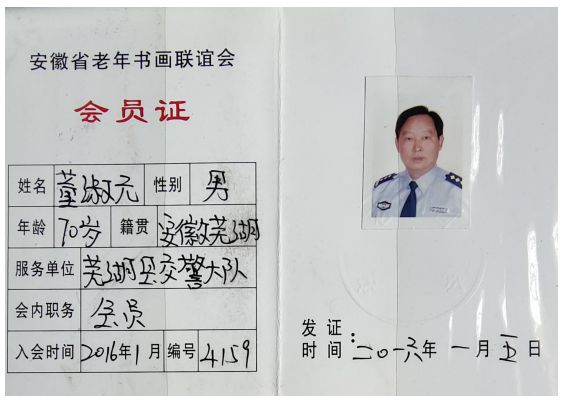 安徽省老年书画联谊会
会员证
姓名 董淑元 性别 男
年龄 70岁 籍贯 安徽芜湖
服务单位 芜湖县交警大队
会内职务 会员
入会时间 2016年1月 编号 4159
发证
时间：二〇一六年一月五日